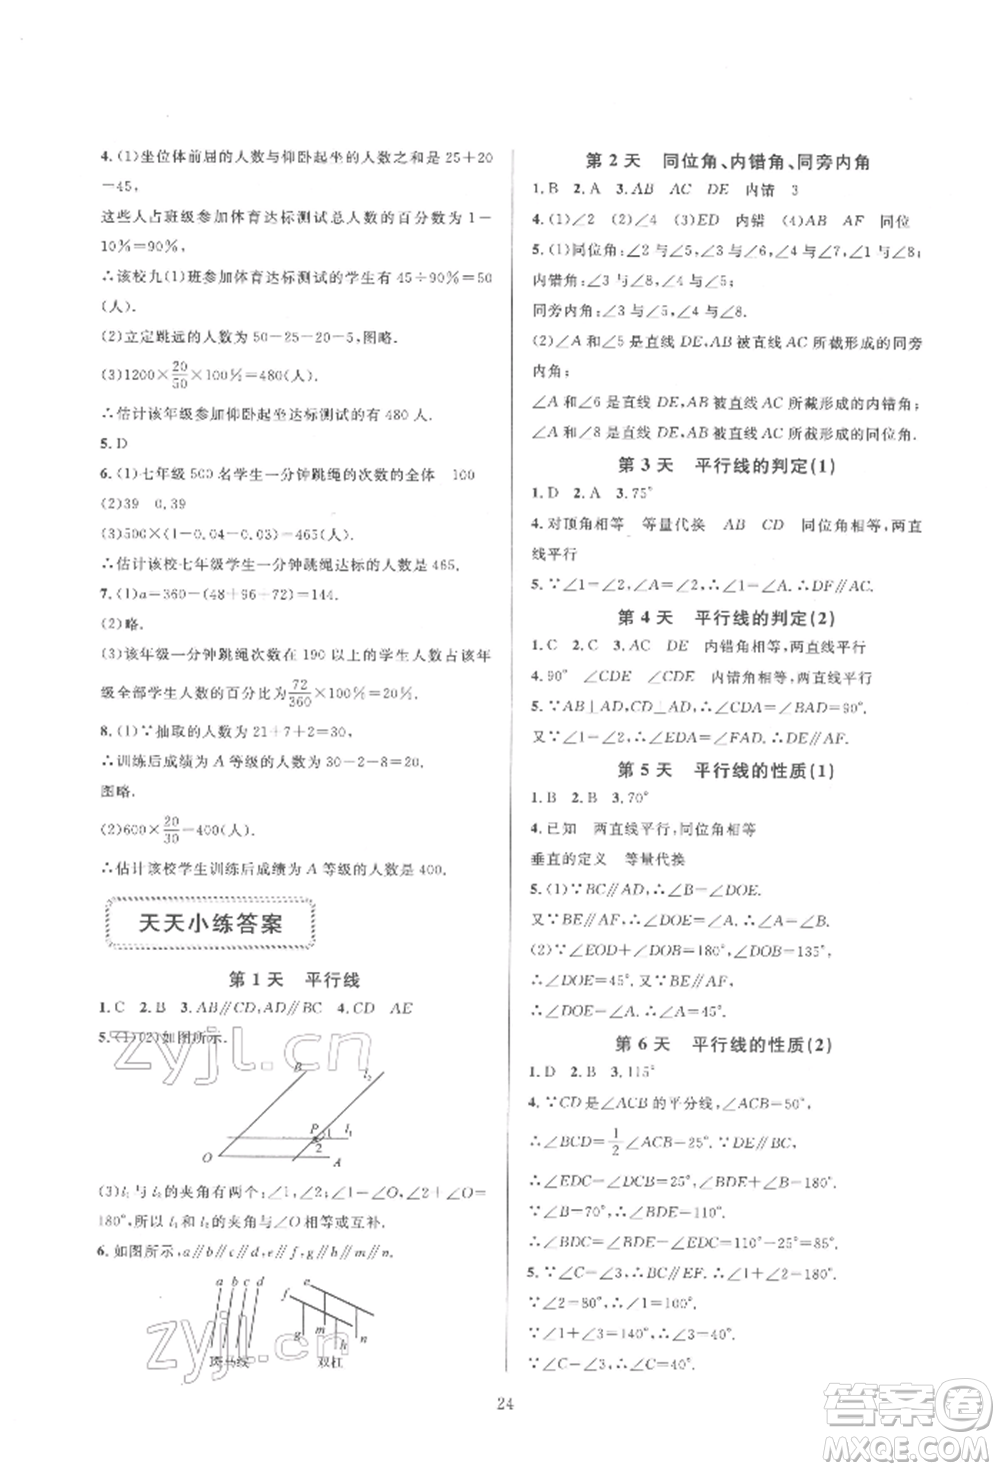 4.(1)坐位体前屈的人数与仰卧起坐的人数之和是25+20
=45,
这些人占班级参加体育达标测试总人数的百分数为1-
10%=90%,
∴该校九(1)班参加体育达标测试的学生有45÷90%=50
(人).
(2)立定跳远的人数为50-25-20=5,图略.
(3)1200×20/50×100%=480(人).
∴估计该年级参加仰卧起坐达标测试的有480人.
5.D
6.(1)七年级500名学生一分钟跳绳的次数的全体 100
(2)39 0.39
(3)500×(1-0.04-0.03)=465(人).
∴估计该校七年级学生一分钟跳绳达标的人数是465.
7.(1)a=360-(48+96+72)=144.
(2)略.
(3)该年级一分钟跳绳次数在190以上的学生人数占该年
级全部学生人数的百分比为72/360×100%=20%.
8.(1)∵抽取的人数为21+7+2=30,
∴训练后成绩为A等级的人数为30-2-8=20.
图略.
(2)600×20/30=400(人).
∴估计该校学生训练后成绩为A等级的人数是400.
天天小练答案
第1天 平行线
1.C 2.B 3.AB∥CD,AD∥BC 4.CD AE
5.(1)(2)如图所示.
B l₂
P 1 l₁
2
O A
(3)l₁与l₂的夹角有两个:∠1,∠2;∠1=∠O,∠2+∠O=
180°,所以l₁和l₂的夹角与∠O相等或互补.
6.如图所示,a∥b∥c∥d,e∥f,g∥h∥m∥n.
a b c d
e
f
g m h n
斑马线 双杠
第2天 同位角、内错角、同旁内角
1.B 2.A 3.AB AC DE 内错 3
4.(1)∠2 (2)∠4 (3)ED 内错 (4)AB AF 同位
5.(1)同位角:∠2与∠5,∠3与∠6,∠4与∠7,∠1与∠8;
内错角:∠3与∠8,∠4与∠5;
同旁内角:∠3与∠5,∠4与∠8.
(2)∠A和∠5是直线DE,AB被直线AC所截形成的同旁
内角;
∠A和∠6是直线DE,AB被直线AC所截形成的内错角;
∠A和∠8是直线DE,AB被直线AC所截形成的同位角.
第3天 平行线的判定(1)
1.D 2.A 3.75°
4.对顶角相等 等量代换 AB CD 同位角相等,两直
线平行
5.∵∠1=∠2,∠A=∠2,∴∠1=∠A,∴DF∥AC.
第4天 平行线的判定(2)
1.C 2.C 3.AC DE 内错角相等,两直线平行
4.90° ∠CDE ∠CDE 内错角相等,两直线平行
5.∵AB⊥AD,CD⊥AD,∴∠CDA=∠BAD=90°.
又∵∠1=∠2,∴∠EDA=∠FAD,∴DE∥AF.
第5天 平行线的性质(1)
1.B 2.B 3.70°
4.已知 两直线平行,同位角相等
垂直的定义 等量代换
5.(1)∵BC∥AD,∴∠B=∠DOE.
又∵BE∥AF,∴∠DOE=∠A,∴∠A=∠B.
(2)∵∠EOD+∠DOB=180°,∠DOB=135°,
∴∠DOE=45°.又∵BE∥AF,
∴∠A=∠DOE=45°.
第6天 平行线的性质(2)
1.D 2.B 3.115°
4.∵CD是∠ACB的平分线,∠ACB=50°,
∴∠BCD=1/2∠ACB=25°.∵DE∥BC,
∴∠EDC=∠DCB=25°,∠BDE+∠B=180°.
∵∠B=70°,∴∠BDE=110°,
∴∠BDC=∠BDE-∠EDC=110°-25°=85°.
5.∵∠C=∠1,∴BC∥EF.∴∠2+∠3=180°.
∵∠2=80°,∴∠3=100°.
∵∠1+∠3=140°,∴∠1=40°.
∵∠C=∠1,∴∠C=40°.
24
zyjl.cn
zyjl.cn
答案圈
MXQE.COM